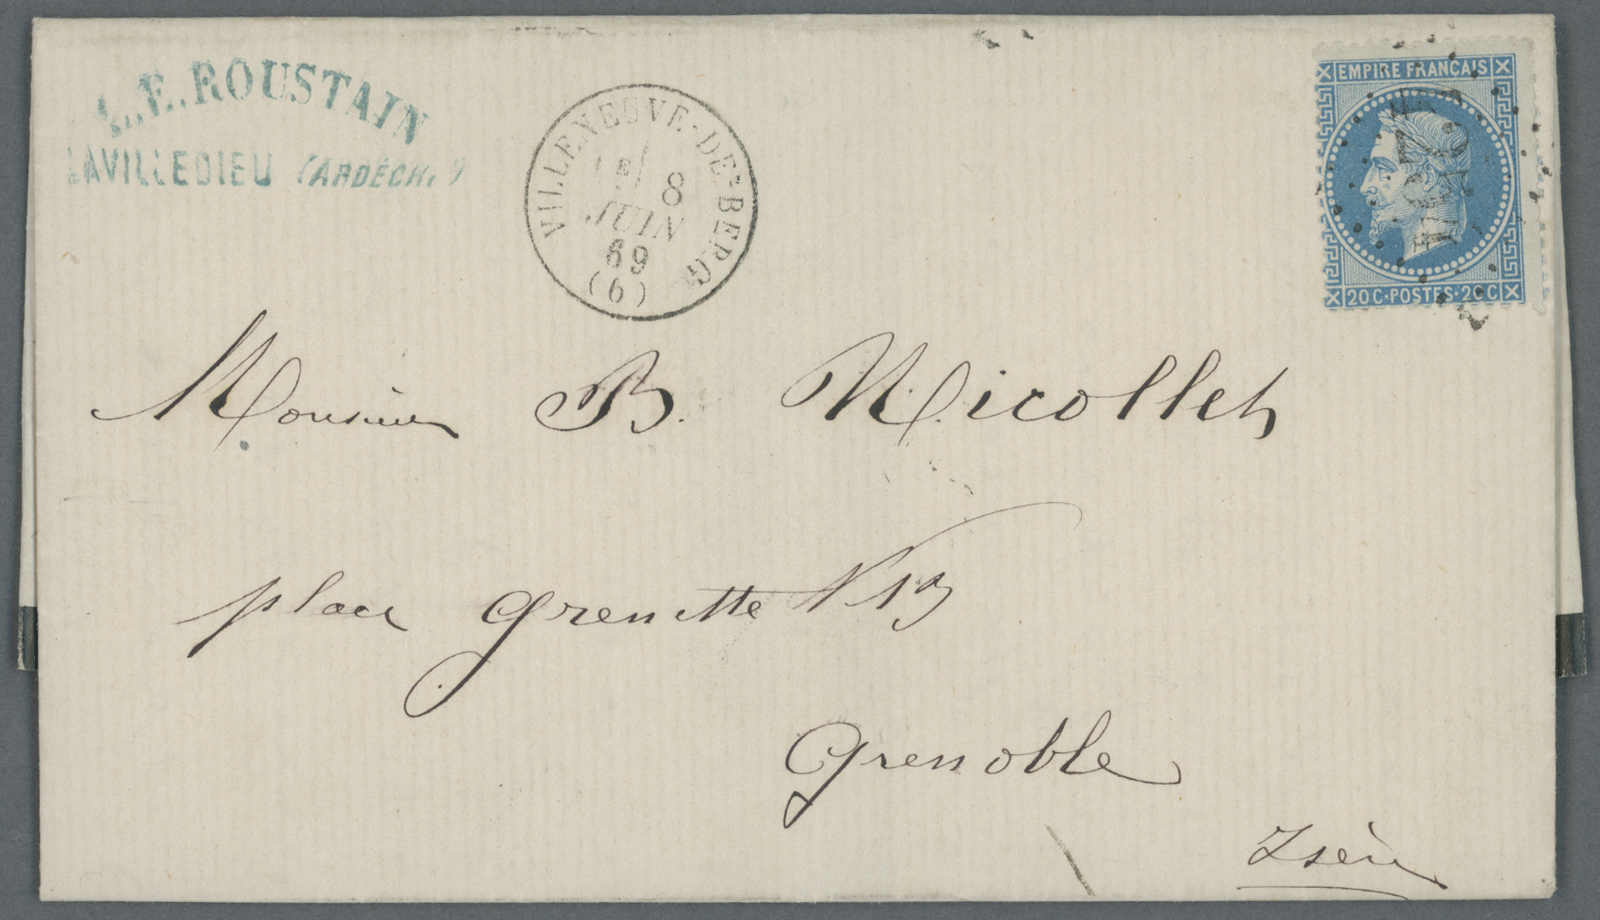 L.E. ROUSTAIN
LAVILLEDIEU (ARDÈCHE)
VILLENEUVE-DE-BERG
8
JUIN
69
(6)
EMPIRE FRANÇAIS
20C·POSTES·20C
Monsieur B. Nicollet
place Grenette N 13
Grenoble
Isère